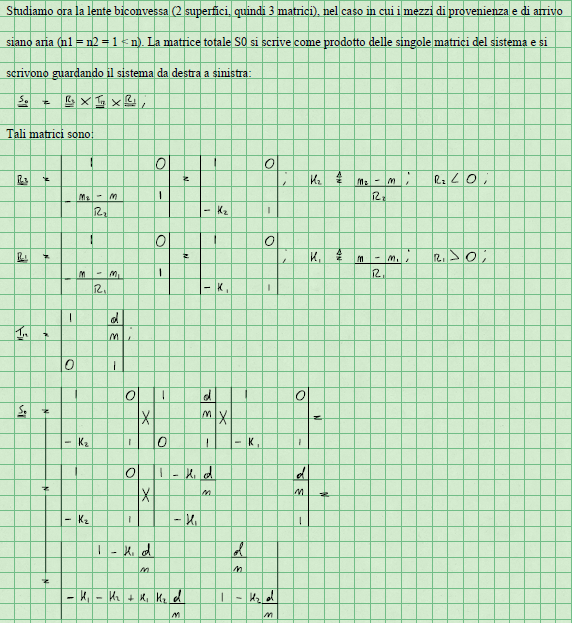 Studiamo ora la lente biconvessa (2 superfici, quindi 3 matrici), nel caso in cui i mezzi di provenienza e di arrivo
siano aria (n1 = n2 = 1 < n). La matrice totale S0 si scrive come prodotto delle singole matrici del sistema e si
scrivono guardando il sistema da destra a sinistra:
S₀ = R₂ × T₁₂ × R₁ ;
Tali matrici sono:
R₂ = | 1 0 ; - (n₂ - n)/R₂ 1 | = | 1 0 ; - K₂ 1 | ; K₂ ≜ (n₂ - n)/R₂ ; R₂ < 0 ;
R₁ = | 1 0 ; - (n - n₁)/R₁ 1 | = | 1 0 ; - K₁ 1 | ; K₁ ≜ (n - n₁)/R₁ ; R₁ > 0 ;
T₁₂ = | 1 d/n ; 0 1 | ;
S₀ = | 1 0 ; - K₂ 1 | × | 1 d/n ; 0 1 | × | 1 0 ; - K₁ 1 | =
= | 1 0 ; - K₂ 1 | × | 1 - K₁ d/n d/n ; - K₁ 1 | =
= | 1 - K₁ d/n d/n ; - K₁ - K₂ + K₁ K₂ d/n 1 - K₂ d/n |